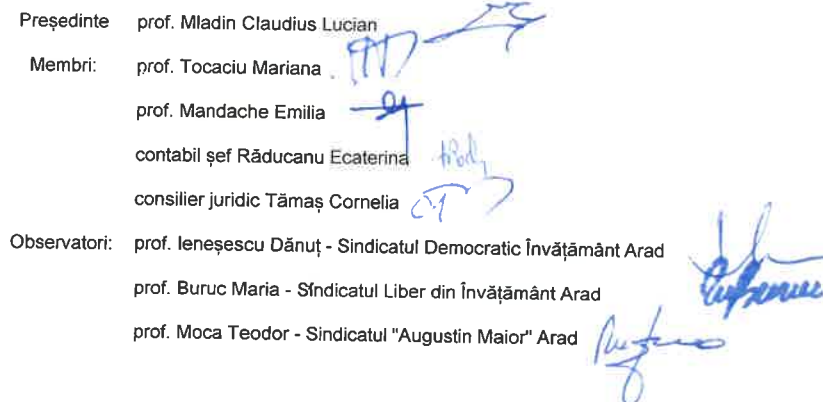 Președinte prof. Mladin Claudius Lucian
Membri: prof. Tocaciu Mariana
prof. Mandache Emilia
contabil șef Răducanu Ecaterina
consilier juridic Tămaș Cornelia
Observatori: prof. Ieneșescu Dănuț - Sindicatul Democratic Învățământ Arad
prof. Buruc Maria - Sindicatul Liber din Învățământ Arad
prof. Moca Teodor - Sindicatul "Augustin Maior" Arad